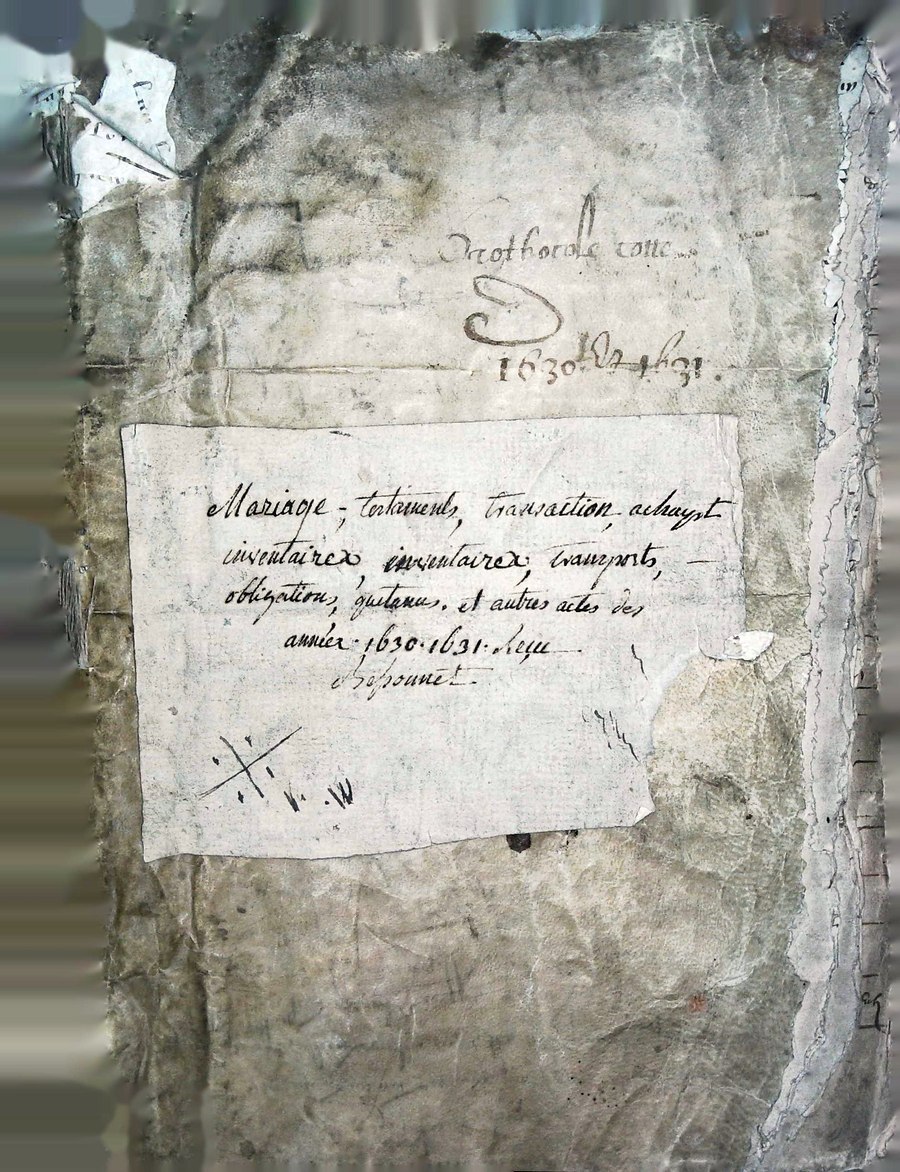 Prothocole
1630 & 1631.
Mariage, testaments, transaction, achayst
inventaires, inventaires, transports, —
obligations, quitanus. et autres actes des
années. 1630. 1631. Reçu